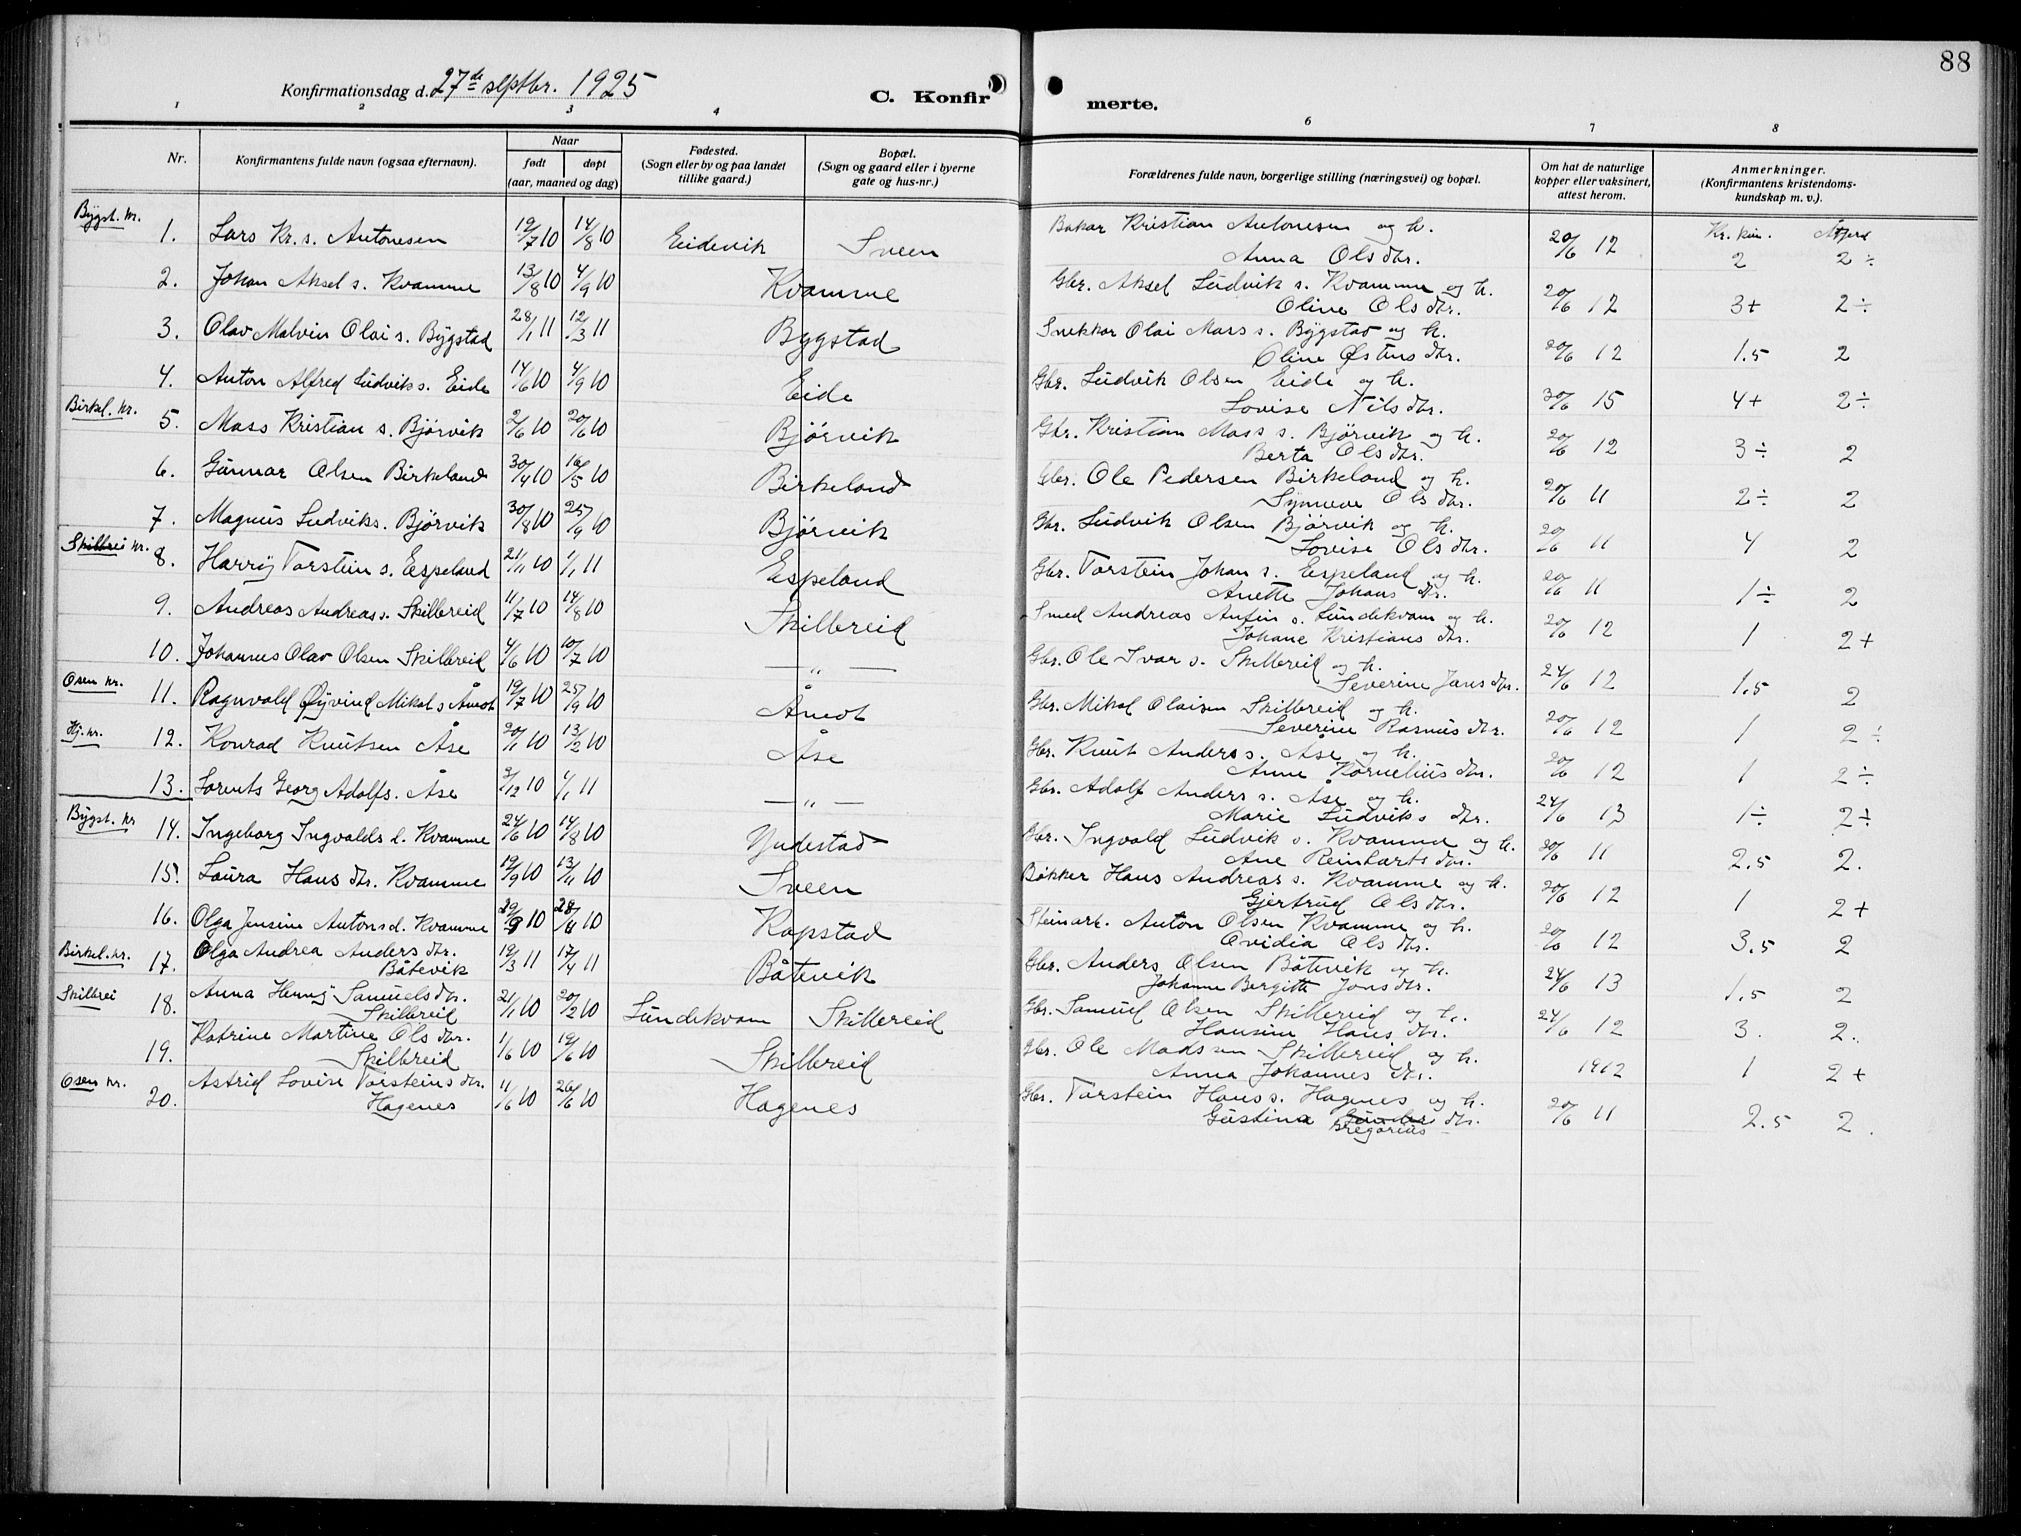 88
Konfirmationsdag d. 27de septbr. 1925
C. Konfir merte.
1 2 3 4 6 7 8
Nr. Konfirmantens fulde navn (ogsaa efternavn). Naar født døpt (aar, maaned og dag) Fødested. (Sogn eller by og paa landet tillike gaard.) Bopæl. (Sogn og gaard eller i byerne gate og hus-nr.) Forældrenes fulde navn, borgerlige stilling (næringsvei) og bopæl. Om hat de naturlige kopper eller vaksinert, attest herom. Anmerkninger. (Konfirmantens kristendoms-kundskap m. v.).
Kr. kun. Åtferd
Bygst. kr. 1. Lars Kr. s. Antonesen 19/7 10 14/8 10 Eidevik Sveen Bakar Kristian Antonesen og h. Anna Olsdtr. 20/6 12 2 2÷
2. Johan Aksel s. Kvamme 13/8 10 4/9 10 Kvamme Gbr. Aksel Ludvik s. Kvamme og h. Oline Olsdtr. 20/6 12 3+ 2÷
3. Olav Malvin Olai s. Bygstad 28/1 11 12/3 11 Bygstad Snekkar Olai Mass s. Bygstad og h. Oline Østens dtr. 20/6 12 1.5 2
4. Anton Alfred Ludviks. Eide 14/6 10 4/9 10 Eide Gbr. Ludvik Olsen Eide og h. Lovise Nilsdtr. 30/6 15 4+ 2÷
Birkel. kr. 5. Mass Kristian s. Bjørvik 2/6 10 20/6 10 Bjørvik Gbr. Kristian Mass s. Bjørvik og h. Berta Olsdtr. 20/6 12 3÷ 2
6. Gunnar Olsen Birkeland 30/4 10 16/5 10 Birkeland Gbr. Ole Pedersen Birkeland og h. Synneve Olsdtr. 20/6 11 2÷ 2
7. Magnus Ludviks. Bjørvik 30/8 10 25/9 10 Bjørvik Gbr. Ludvik Olsen Bjørvik og h. Lovise Olsdtr. 20/6 11 4 2
Skilbrei kr. 8. Harry Torstein s. Espeland 21/11 10 1/1 11 Espeland Gbr. Torstein Johan s. Espeland og h. Anette Johans dtr. 20/6 11 1÷ 2
9. Andreas Andreas s. Skilbreid 11/7 10 14/8 10 Skilbreid Smed Andreas Anfin s. Lundekvam og h. Johane Kristians dtr. 20/6 12 1 2+
10. Johannes Olav Olsen Skilbreid 4/6 10 10/7 10 — „ — Gbr. Ole Ivar s. Skilbreid og h. Severine Jansdtr. 24/6 12 1.5 2
Osen kr. 11. Ragnvald Øyvind Mikal s Åmot 19/7 10 25/9 10 Åmot Gbr. Mikal Olaisen Skilbreid og h. Severine Rasmus dtr. 20/6 12 1 2÷
Hj. kr. 12. Konrad Knutsen Åse 20/1 10 13/2 10 Åse Gbr. Knut Anders s. Åse og h. Anne Kornelius dtr. 20/6 12 1 2÷
13. Lorents Georg Adolfs. Åse 3/12 10 1/1 11 — „ — Gbr. Adolf Anders s. Åse og h. Marie Ludviks dtr. 24/6 13 1÷ 2÷
Bygst. kr 14. Ingeborg Ingvalds d. Kvamme 24/6 10 14/8 10 Yndestad Gbr. Ingvald Ludvik s. Kvamme og h. Ane Reinharts dtr. 20/6 11 2.5 2.
15. Laura Hans dtr. Kvamme 19/9 10 13/11 10 Sveen Bøkker Hans Andreas s. Kvamme og h. Gjertrud Olsdtr. 20/6 12 1 2+
16. Olga Jensine Antons d. Kvamme 10 10 Rapstad Steinarb. Anton Olsen Kvamme og h. Ovidia Olsdtr. 20/6 12 3.5 2
Birkel. kr. 17. Olga Andrea Anders dtr. Båtevik 19/3 11 17/4 11 Båtevik Gbr. Anders Olsen Båtevik og h. Johanne Bergitte Jonsdtr. 24/6 13 1.5 2
Skilbrei 18. Anna Henny Samuelsdtr. Skilbreid 21/1 10 20/2 10 Lundekvam Skilbreid Gbr. Samuel Olsen Skilbreid og h. Hansine Hans dtr. 24/6 12 3 2.
19. Katrine Martine Olsdtr. Skilbreid 1/6 10 19/6 10 Skilbreid Gbr. Ole Madssen Skilbreid og h. Anna Johannes dtr. 1912 1 2+
Osen kr. 20. Astrid Lovise Torsteins dtr. Hagenes 11/6 10 26/6 10 Hagenes Gbr. Torstein Hans s. Hagenes og h. Gustina dtr. Gregorius 20/6 11 2.5 2.